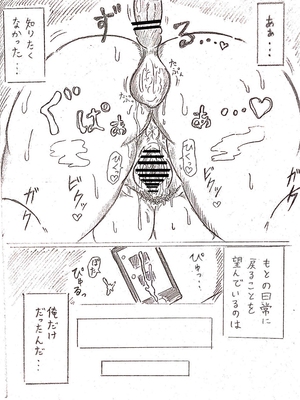 あぁ・・・
ずる・・・♡
知りたく
なかった・・・
たぷん
たぷん
ぐぱぁぁ・・・♡
ひく♡
ひく♡
ガク
ガク
もとの日常に
戻ることを
望んでいるのは
ぴゅっ・・
ぴゅるっ
ぼた
俺だけ
だったんだ・・・